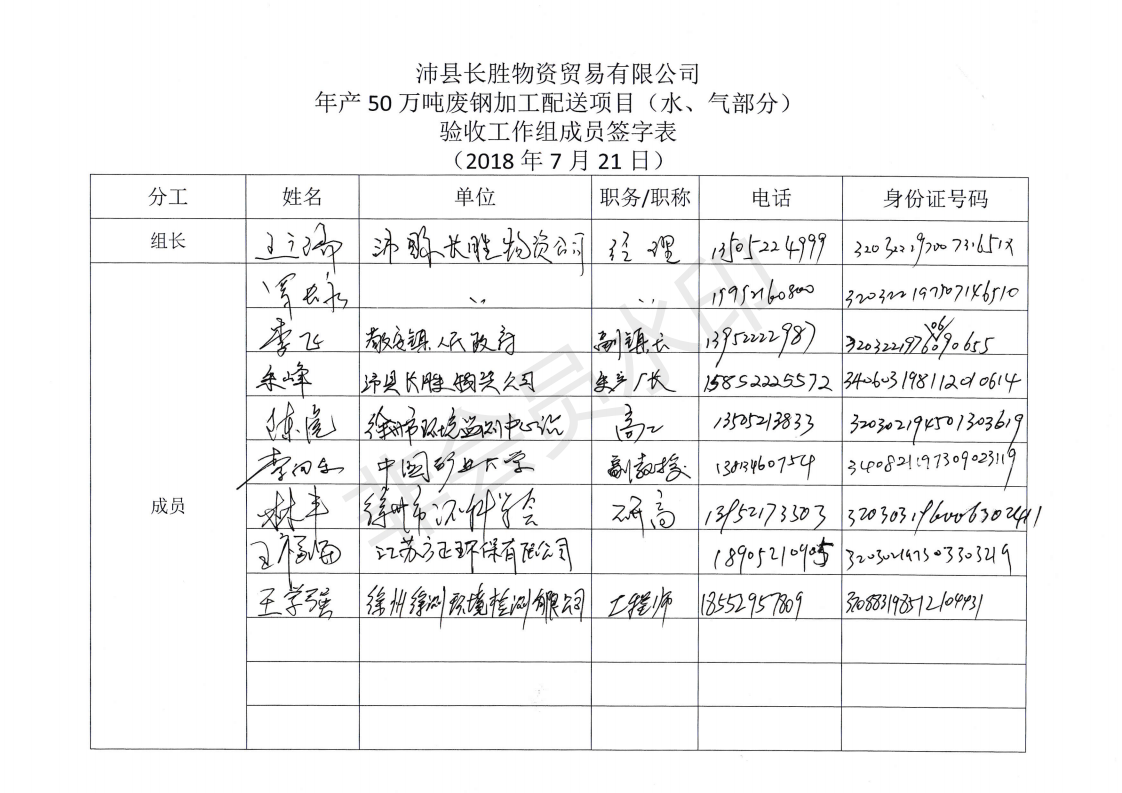 沛县长胜物资贸易有限公司
年产 50 万吨废钢加工配送项目（水、气部分）
验收工作组成员签字表
（2018 年 7 月 21 日）
分工 姓名 单位 职务/职称 电话 身份证号码
组长 王立瑞 沛县长胜物资公司 经理 13505224999
成员
15952160800 320322197507146510
李飞 敬安镇人民政府 副镇长 13952222987
朱峰 沛县长胜物资公司 生产厂长 15852225572 340603198112010614
徐州市环境监测中心站 高工 13505213833 320302194501303619
中国矿业大学 副教授 340821197309023119
林丰 徐州市环科学会 研高 13952173503
江苏方正环保有限公司 320302197503303219
王学强 徐州徐测环境检测有限公司 工程师 18552957809 320883198512104431
非会员水印